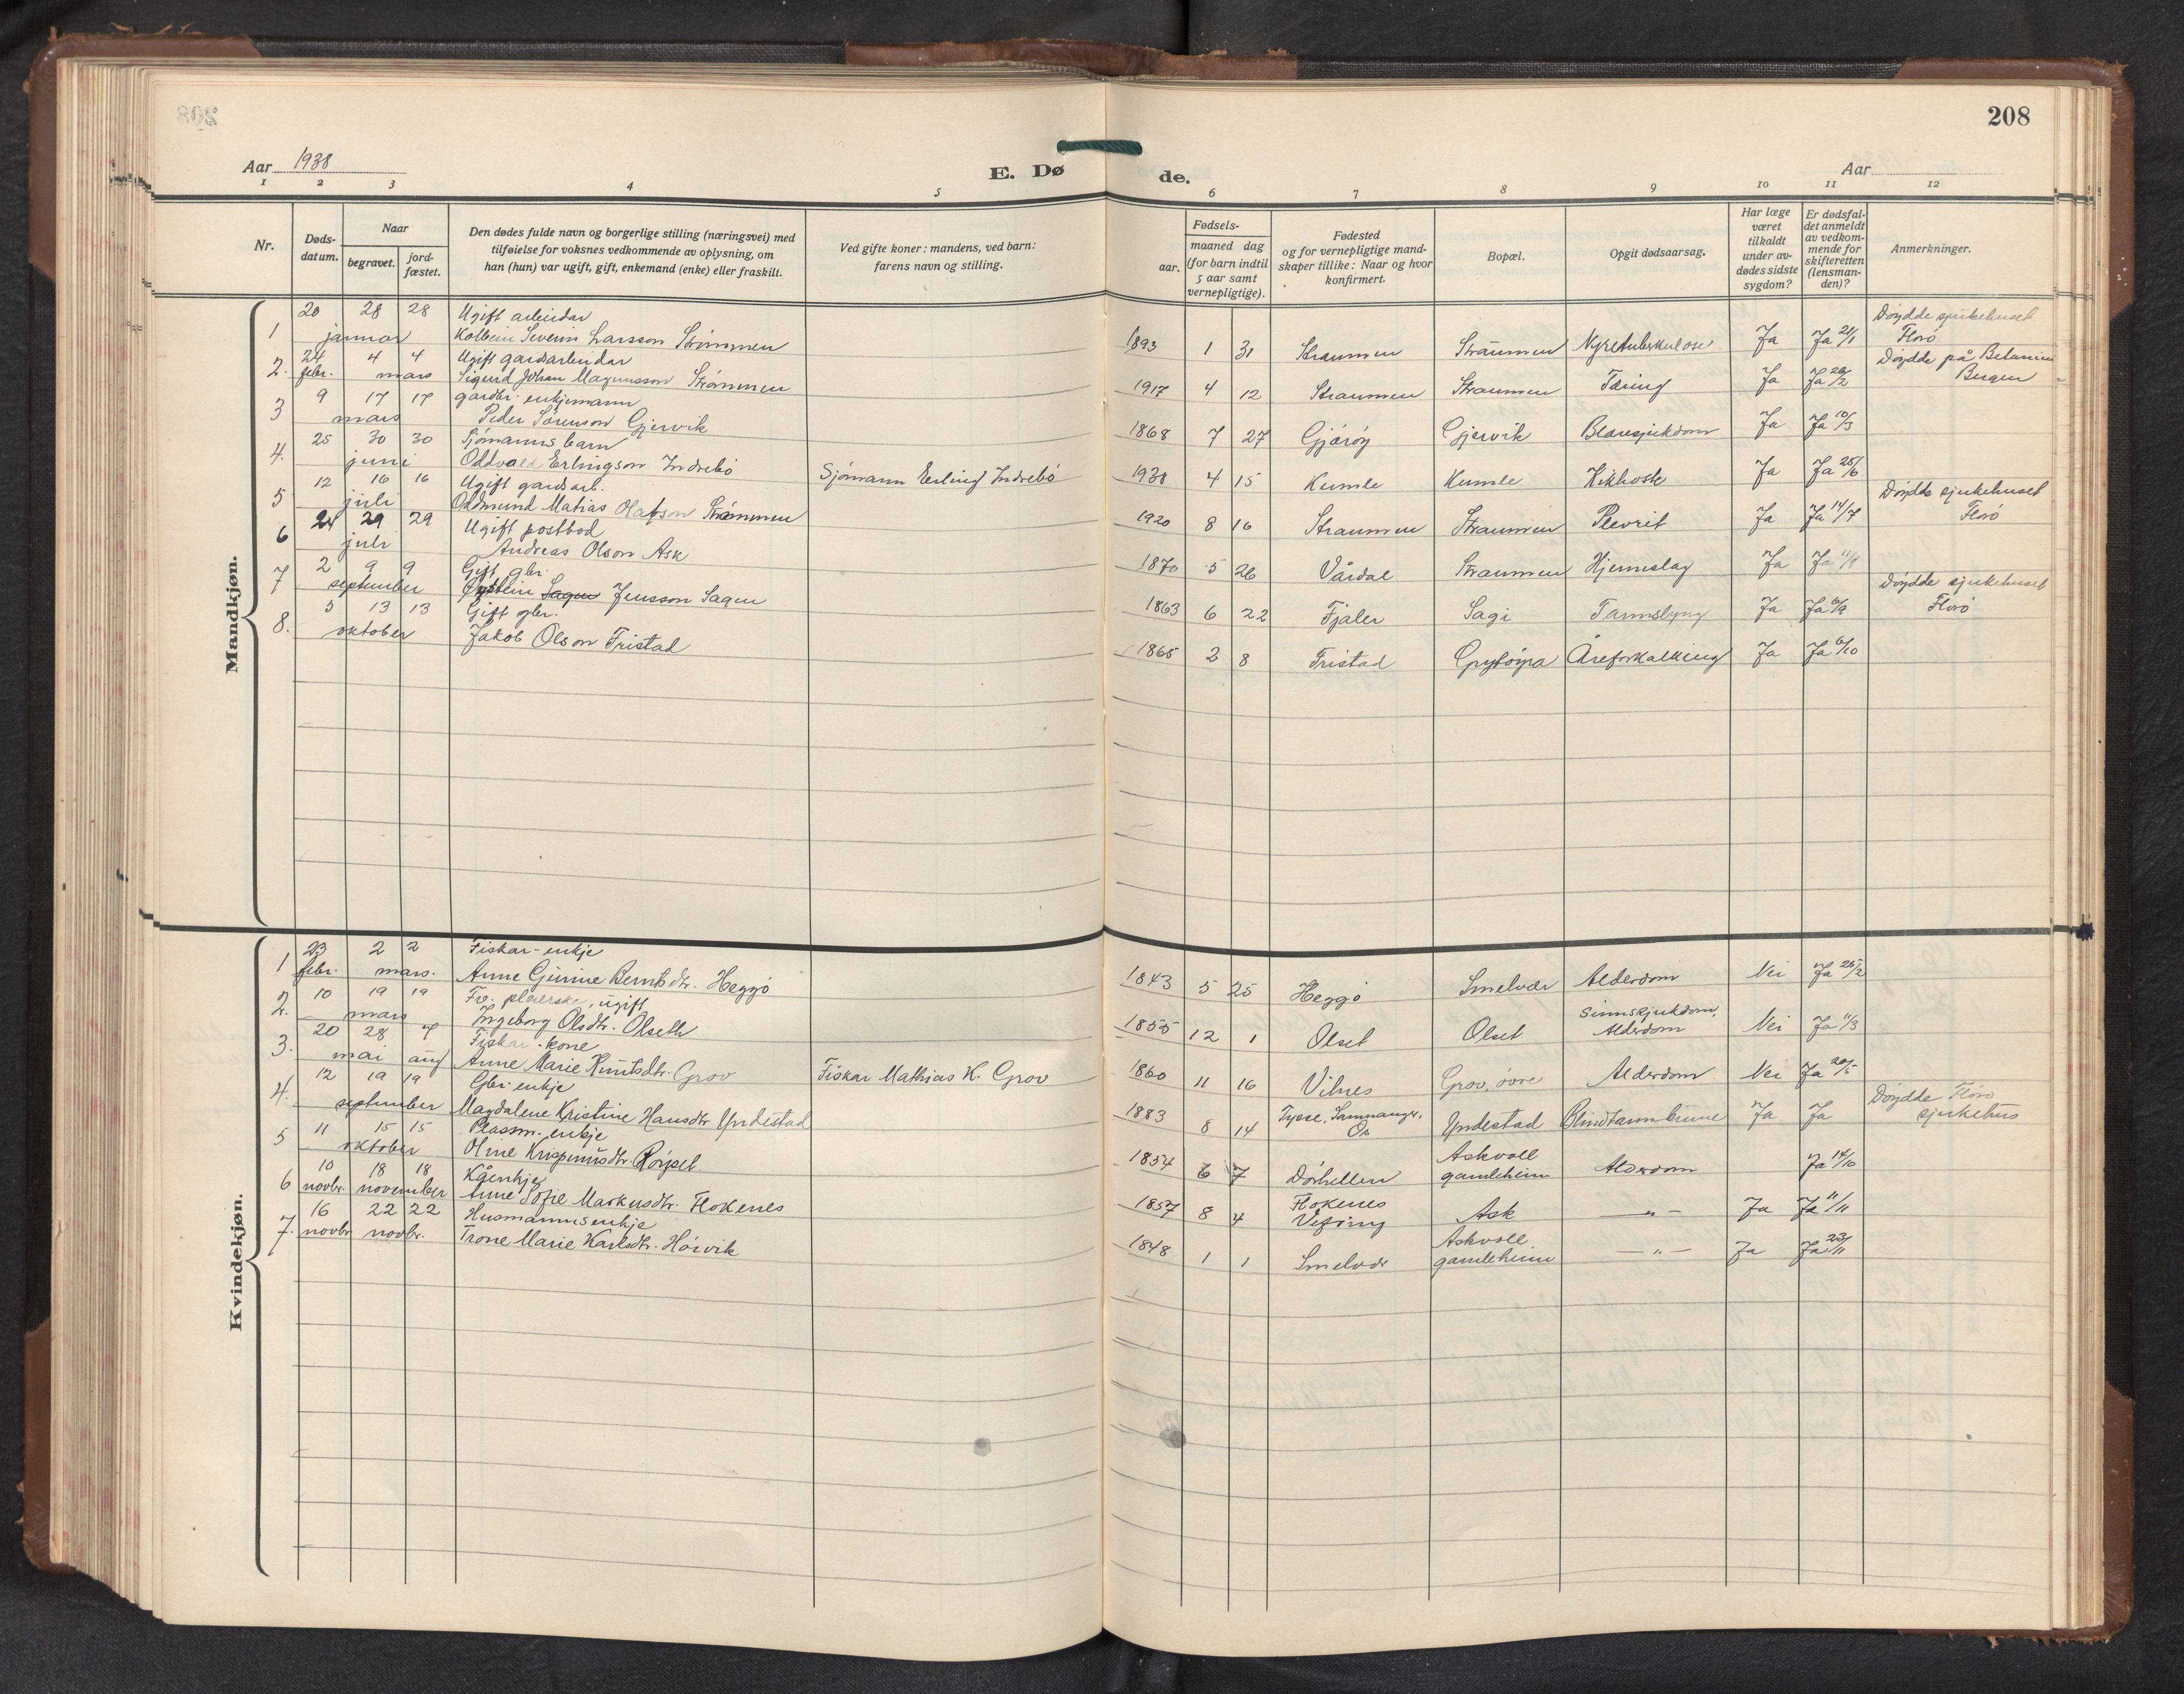 208
Aar 1938
E. Dø
de.
Aar
1 2 3 4 5 6 7 8 9 10 11 12
Nr.
Døds-
datum.
Naar
begravet.
jord-
fæstet.
Den dødes fulde navn og borgerlige stilling (næringsvei) med
tilføielse for voksnes vedkommende av oplysning, om
han (hun) var ugift, gift, enkemand (enke) eller fraskilt.
Ved gifte koner: mandens, ved barn:
farens navn og stilling.
Fødsels-
aar.
maaned dag
(for barn indtil
5 aar samt
vernepligtige).
Fødested
og for vernepligtige mand-
skaper tillike: Naar og hvor
konfirmert.
Bopæl.
Opgit dødsaarsag.
Har læge
været
tilkaldt
under av-
dødes sidste
sygdom?
Er dødsfal-
det anmeldt
av vedkom-
mende for
skifteretten
(lensman-
den)?
Anmerkninger.
Mandkjøn.
20 28 28 Ugift arbeidar Døydde sjukehuset
1 januar Kolbein Severin Larsson Strømmen 1893 1 31 Straumen Straumen Nyretuberkulose Ja Ja 21/1 Florø
24 4 4 Ugift gardsarbeidar Døydde på Betanien
2. febr. mars Sigurd Johan Magnusson Strømmen 1917 4 12 Straumen Straumen Tæring Ja Ja 26/2 Bergen
9 17 17 gardbr. enkjemann
3 mars Peder Sørenson Gjervik 1868 7 27 Gjørøy Gjervik Blæresjukdom Ja Ja 10/3
25 30 30 Sjømanns barn
4. juni Oddvald Erlingson Indrebø Sjømann Erling Indrebø 1938 4 15 Kumle Kumle Kikhoste Ja Ja 25/6
12 16 16 Ugift gardsarb. Døydde sjukehuset
5 juli Oddmund Matias Olafson Strømmen 1920 8 16 Straumen Straumen Plevrit Ja Ja 14/7 Florø
24 29 29 Ugift postbod
6 juli Andreas Olson Ask 1870 5 26 Vårdal Straumen Hjerneslag Ja Ja
2 9 9 Gift gbr. Døydde sjukehuset
7 september Øystein Sagen Jensson Sagen 1863 6 22 Fjaler Sagi Tarmslyng Ja Ja 6/9 Florø
5 13 13 Gift gbr.
8. oktober Jakob Olson Tristad 1865 2 8 Tristad Grytøyra Åreforkalking Ja Ja 6/10
Kvindekjøn.
23 2 2 Fiskar-enkje
1 febr. mars. Anne Gurine Berntsdtr. Heggø 1843 5 25 Heggø Smelvær Alderdom Nei Ja 25/2
10 19 19 Fv. pleierske, ugift Sinnssjukdom,
2. mars Ingeborg Olsdtr. Olseth 1855 12 1 Olset Olset Alderdom Nei Ja 11/3
20 28 7 Fiskar-kone
3. mai aug Anne Marie Knutsdtr. Grov Fiskar Mathias K. Grov 1860 11 16 Vilnes Grov, øvre Alderdom Nei Ja 20/5
12 19 19 Gbr. enkje Tysse, Samnanger, Døydde Florø
4. september Magdalene Kristine Hansdtr. Yndestad 1883 8 14 Os Yndestad Blindtarmbrune Ja Ja sjukehus
11 15 15 Plassm. enkje Askvoll
5 oktober Oline Krispinusdtr. Røyset 1854 6 7 Dørhellen gamleheim Alderdom Ja 14/10
10 18 18 Kårenkje Flokenes
6 novbr. november Anne Sofie Markusdtr. Flokenes 1857 8 4 Vefring Ask — " — Ja Ja 11/11
16 22 22 Husmannsenkje Askvoll
7. novbr. novbr. Trone Marie Karlsdtr. Hørvik 1848 1 1 Smelvær gamleheim — " — Ja Ja 23/11